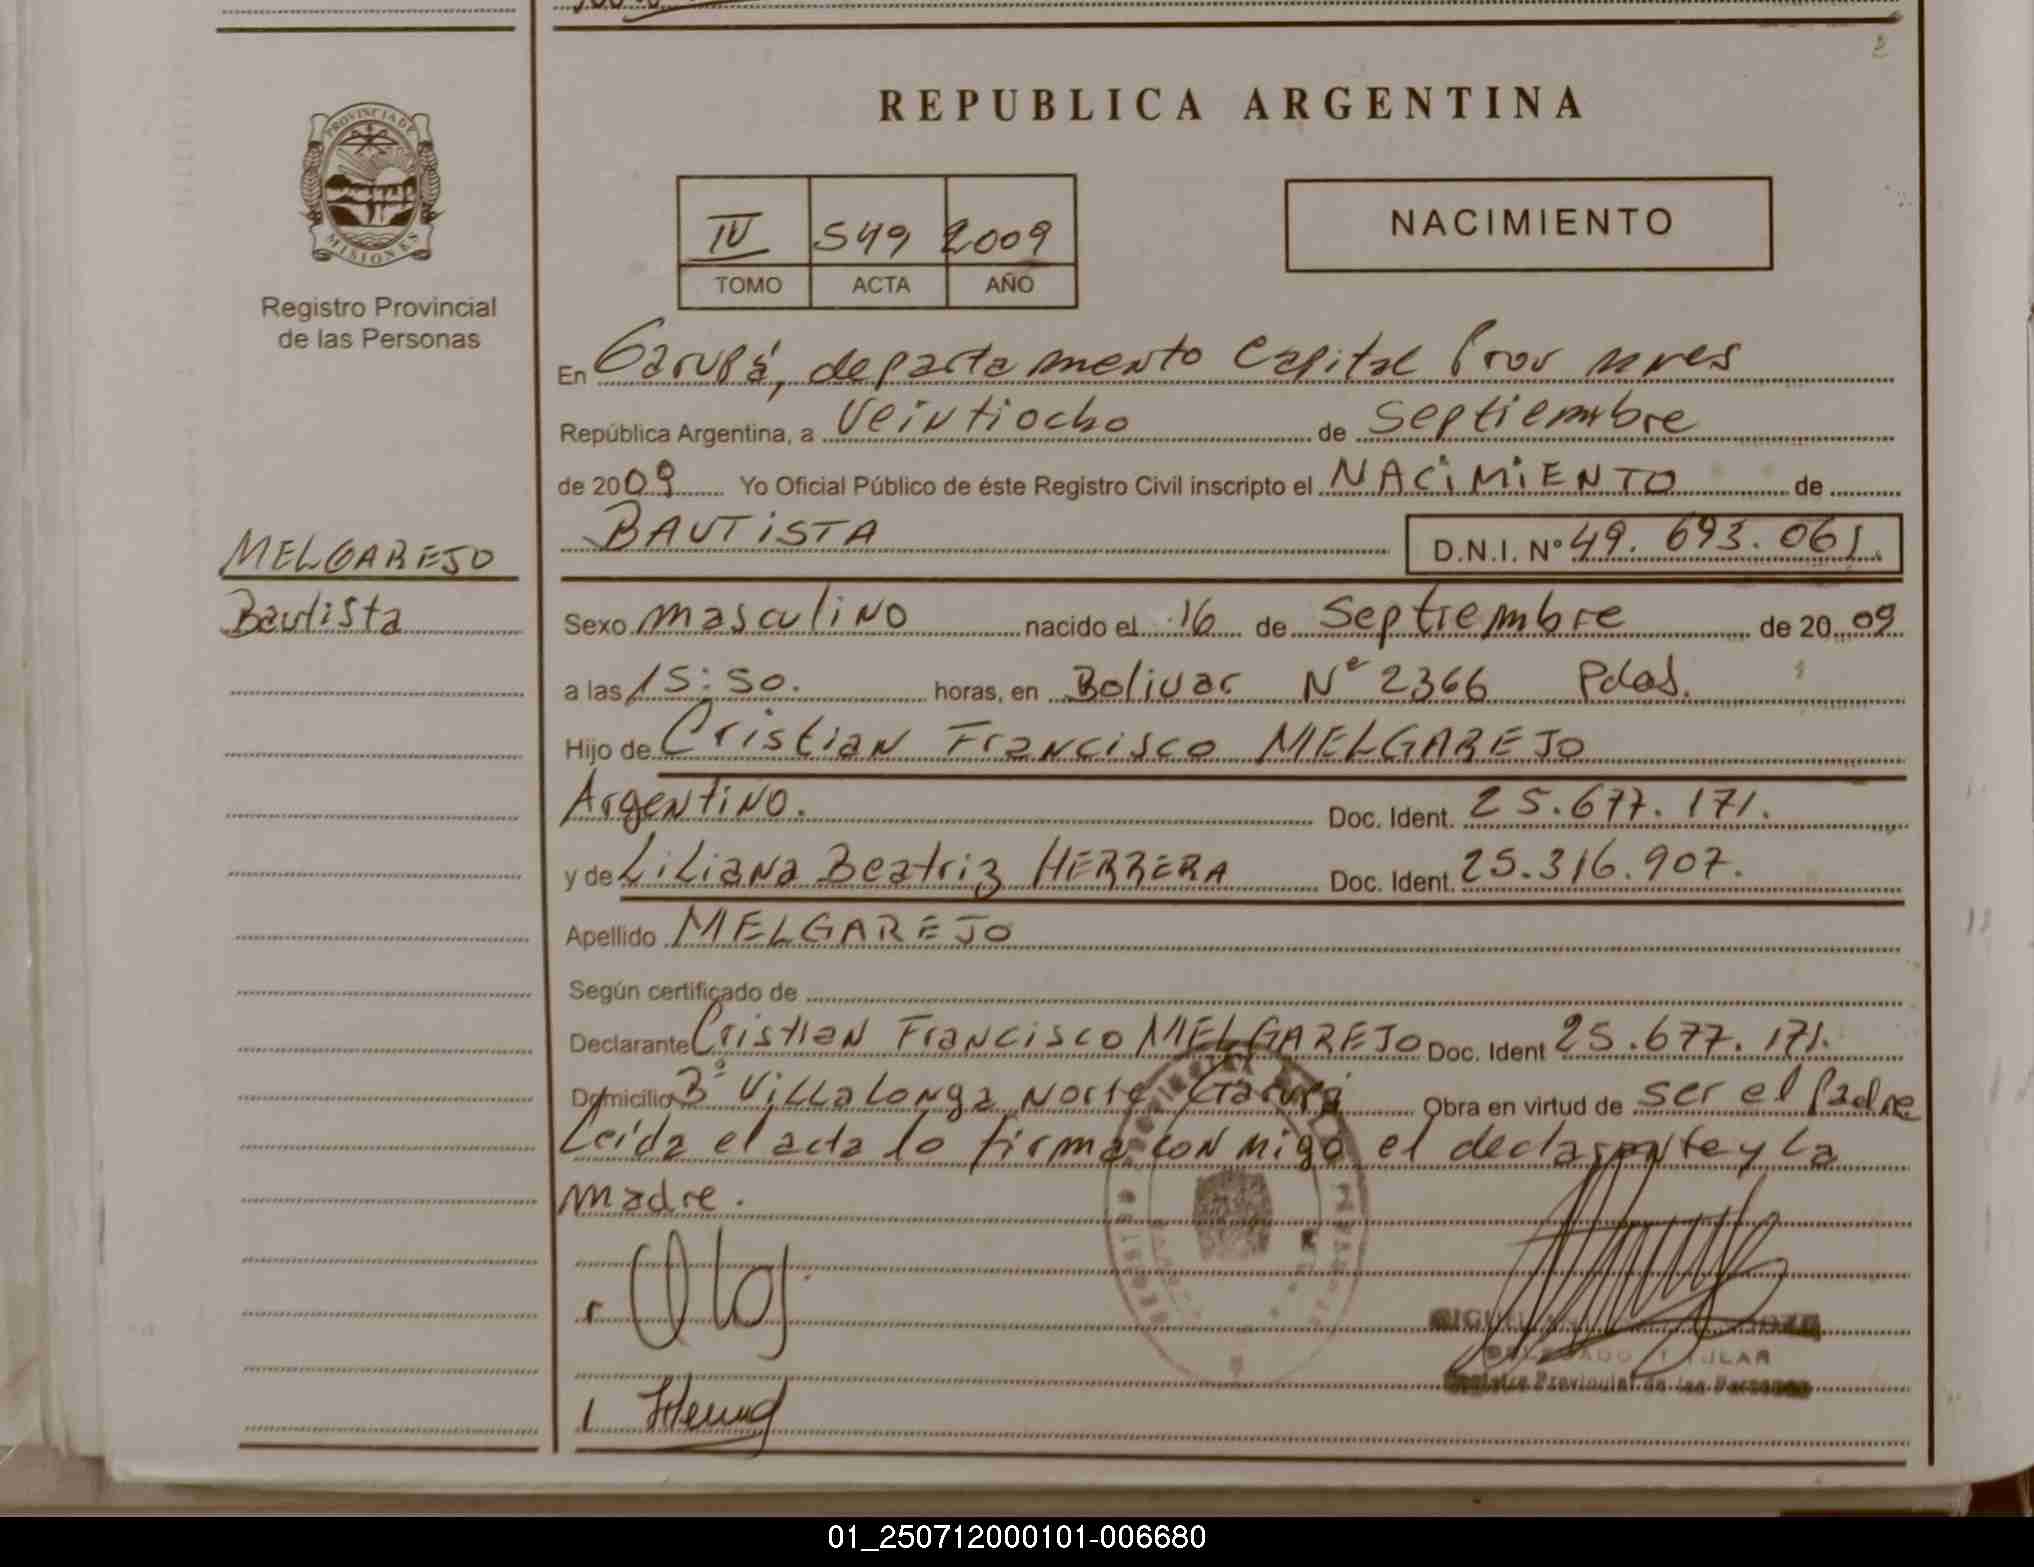 REPUBLICA ARGENTINA
PROVINCIA DE
MISIONES
Registro Provincial
de las Personas
IV 549 2009
TOMO ACTA AÑO
NACIMIENTO
En Garupá, departamento Capital Prov mnes
República Argentina, a Veintiocho de Septiembre
de 2009 Yo Oficial Público de éste Registro Civil inscripto el NACIMIENTO de
BAUTISTA D.N.I. Nº 49.693.061.
MELGAREJO
Bautista
Sexo masculino nacido el 16 de Septiembre de 2009
a las 15:50. horas, en Bolivar Nº 2366 Pdas.
Hijo de Cristian Francisco MELGAREJO
Argentino. Doc. Ident. 25.677.171.
y de Liliana Beatriz HERRERA Doc. Ident. 25.316.907.
Apellido MELGAREJO
Según certificado de
Declarante Cristian Francisco MELGAREJO Doc. Ident 25.677.171.
Domicilio Bº Villalonga Norte Garupá Obra en virtud de ser el Padre
Leída el acta lo firma conmigo el declarante y la
madre.
DELEGADO TITULAR
Registro Provincial de las Personas
01_250712000101-006680